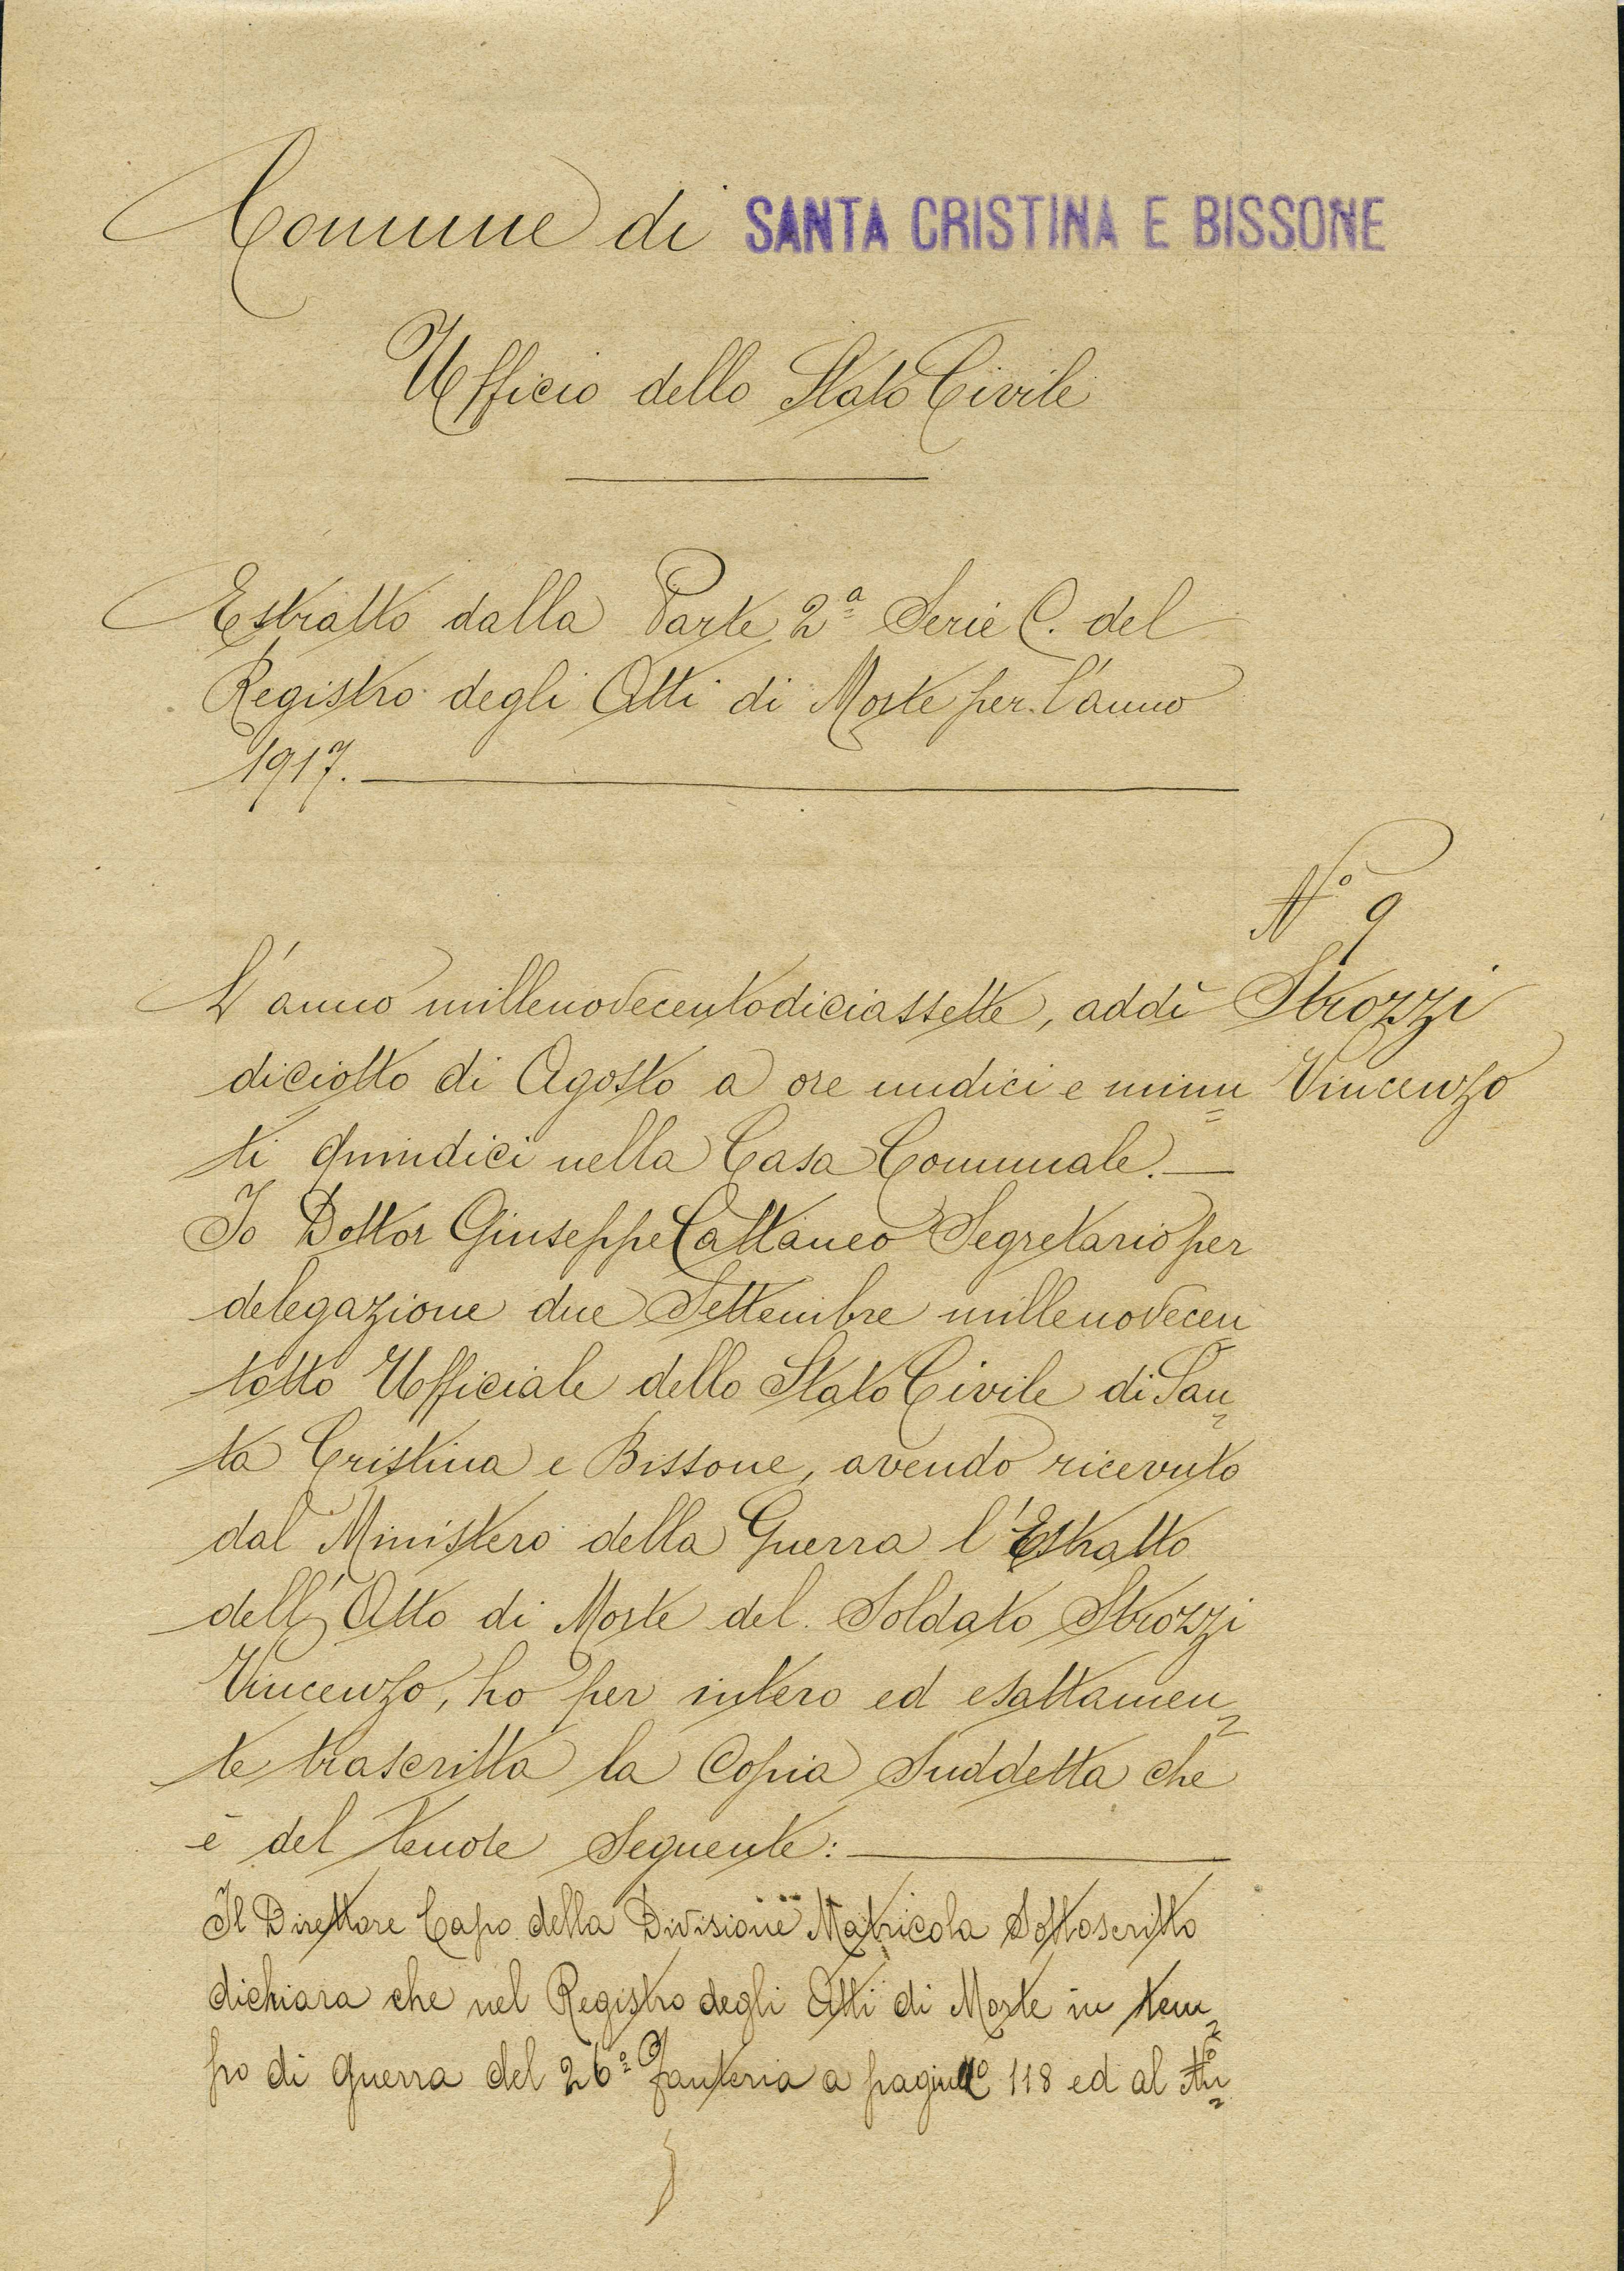 Comune di SANTA CRISTINA E BISSONE
Ufficio dello Stato Civile
Estratto dalla Parte 2ª Serie C. del
Registro degli Atti di Morte per l'anno
1917.
Nº 9
Strozzi
Vincenzo
L'anno millenovecentodiciassette, addì
diciotto di Agosto a ore undici e minu=
ti quindici nella Casa Comunale.
Io Dottor Giuseppe Cattaneo Segretario per
delegazione due Settembre millenovecen=
totto Ufficiale dello Stato Civile di San=
ta Cristina e Bissone, avendo ricevuto
dal Ministero della Guerra l'Estratto
dell'Atto di Morte del Soldato Strozzi
Vincenzo, ho per intero ed esattamen=
te trascritta la Copia Suddetta che
è del tenore Seguente:
Il Direttore Capo della Divisione Matricola Sottoscritto
dichiara che nel Registro degli Atti di Morte in tem=
po di guerra del 26º fanteria a pagina 118 ed al